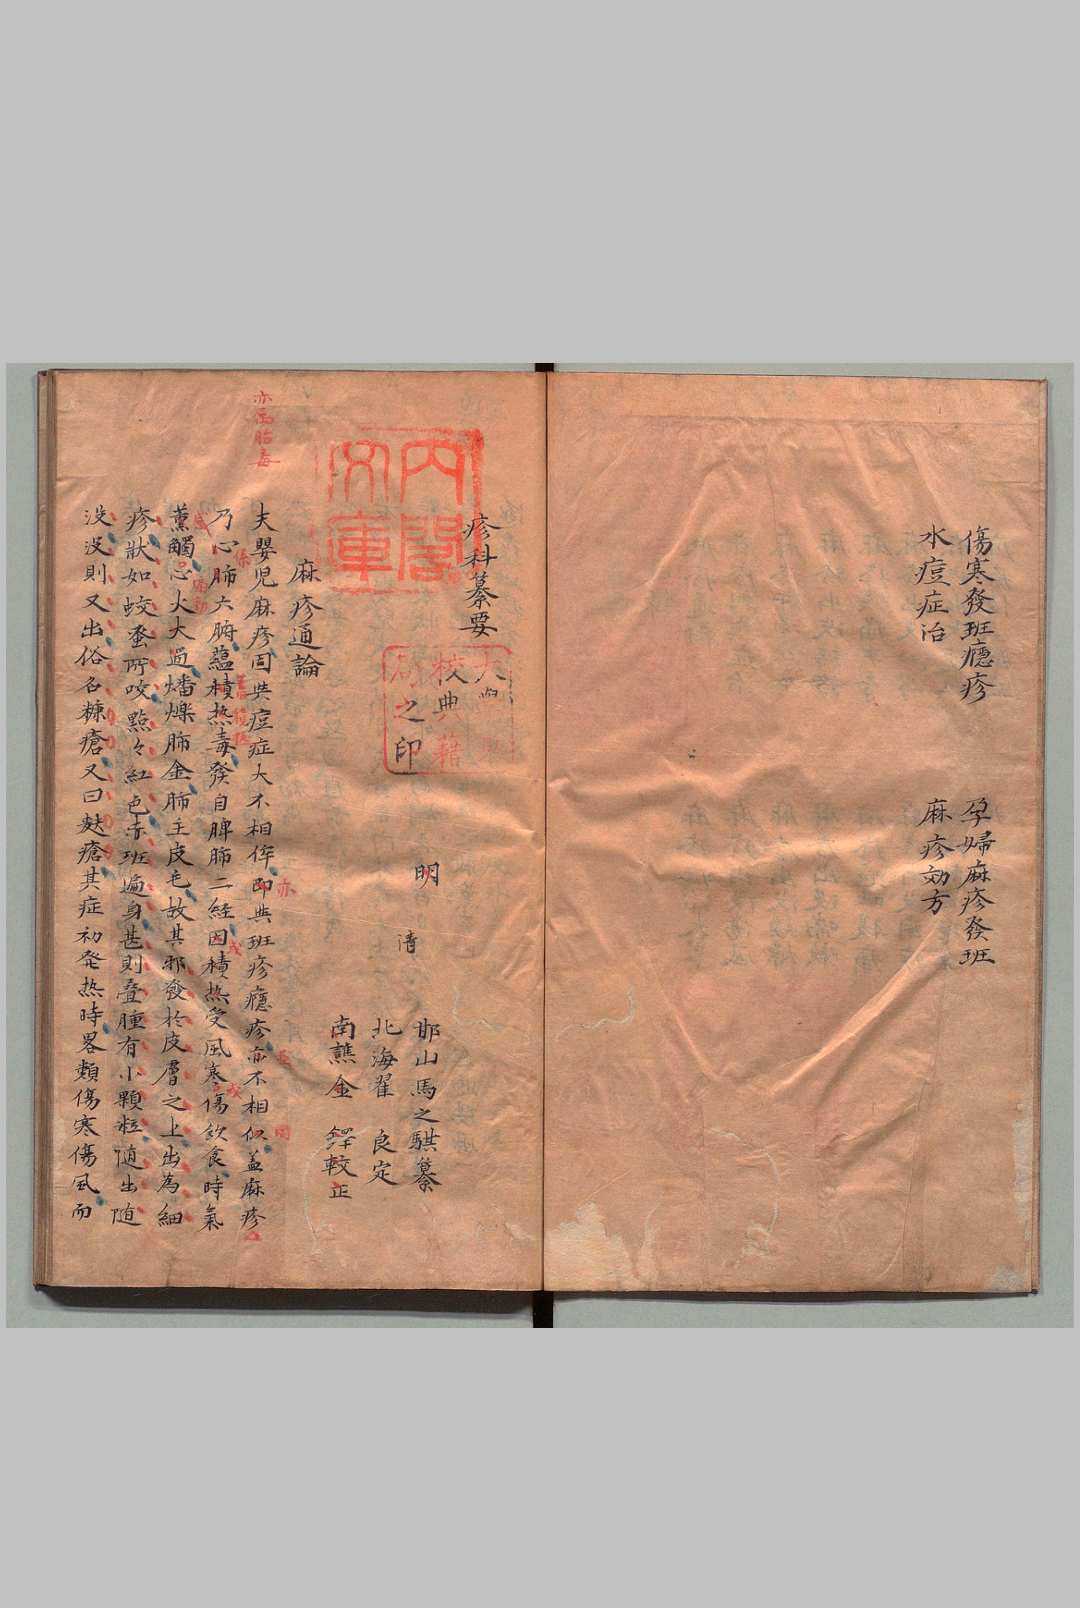 傷寒發班癮疹　孕婦麻疹發班
水痘症治　麻疹効方
疹科纂要
明　邯山馬之騏纂
清　北海翟　良定
南譙金　鐸較正
麻疹通論
夫嬰児麻疹固與痘症大不相侔即與班疹癮疹亦不相似盖麻疹
乃心肺六腑蘊積热毒發自脾肺二経因積热受風寒傷飲食時氣
薫觸心火大過燔爍肺金肺主皮毛故其邪發於皮膚之上出為細
疹状如蚊蚤所咬點々紅色赤班遍身甚則叠腫有小顆粒随出随
没没則又出俗名糠瘡又曰麸瘡其症初発热時畧類傷寒傷風而
亦為胎毒
内閣文庫